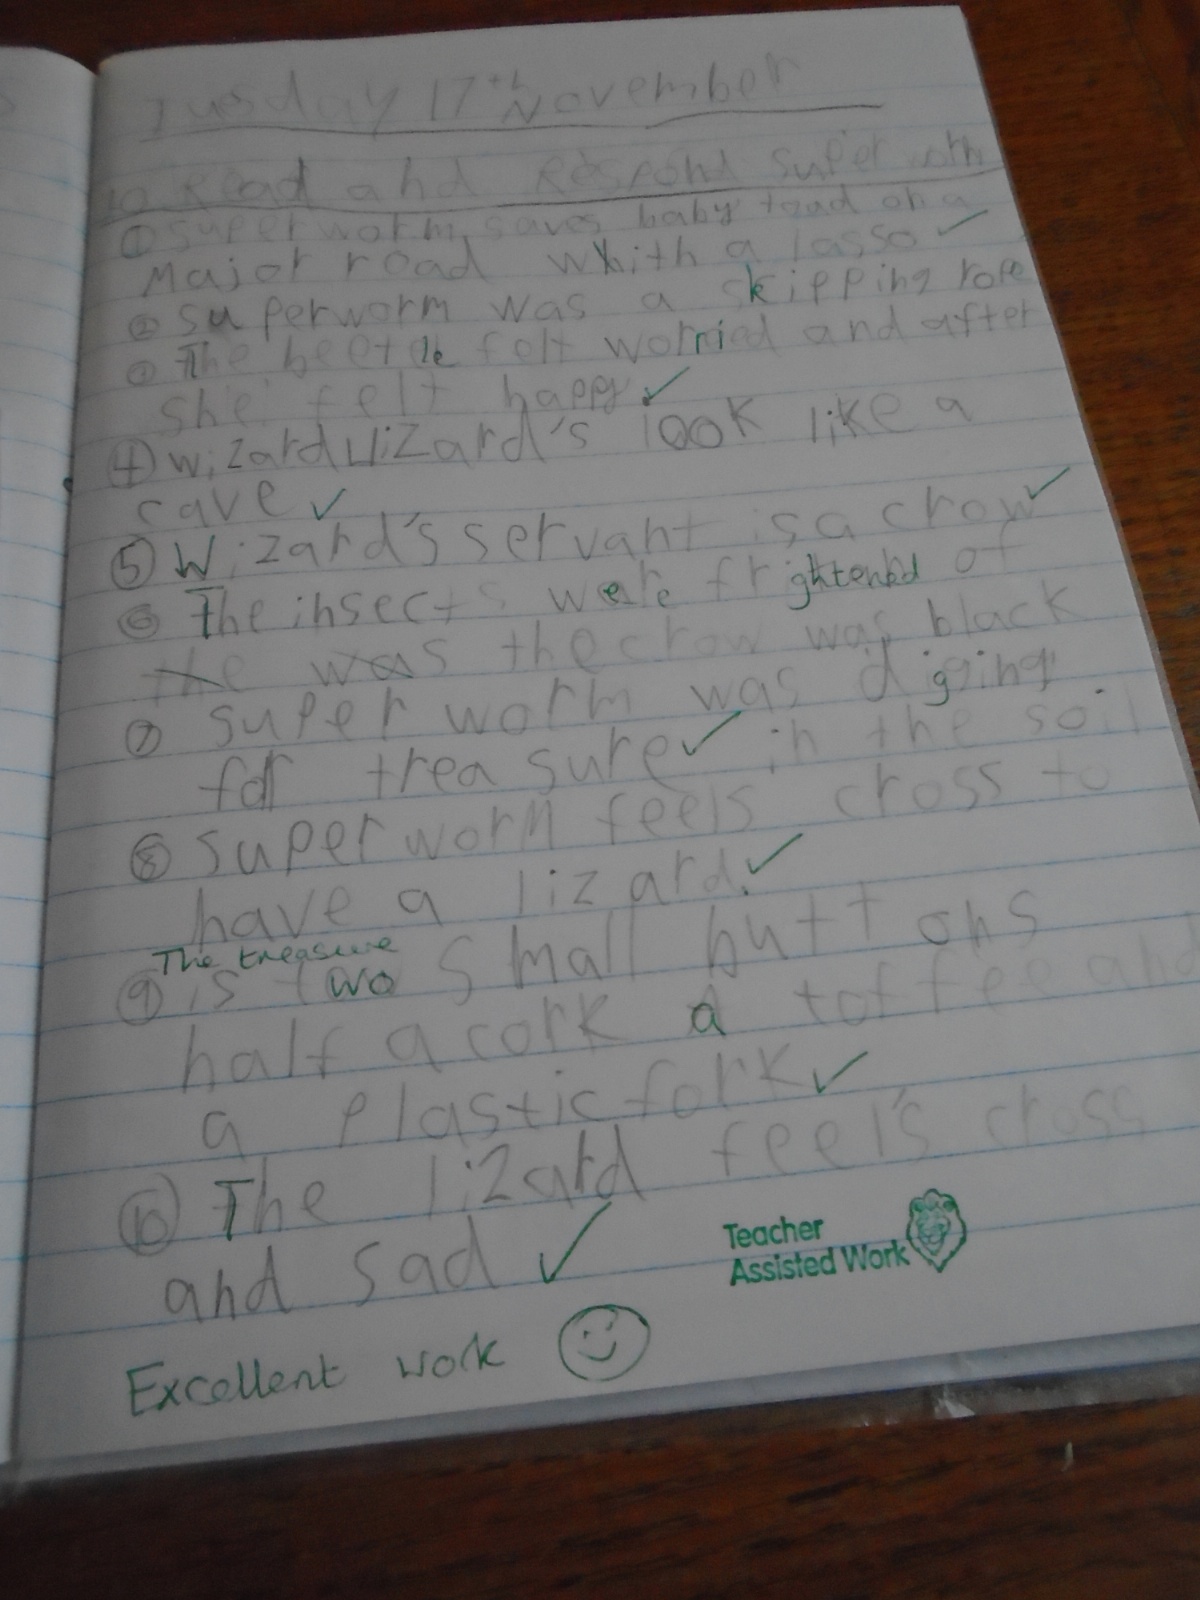 Tuesday 17th November
to Read and Respond Super worm
① superworm saves baby toad on a
Major road whith a lasso ✓
② superworm was a skipping rope
③ The beetle felt worried and after
she felt happy ✓
④ wizard lizard's look like a
cave ✓
⑤ Wizard's servant is a crow ✓
⑥ The insects were frightened of
the was the crow was black
⑦ super worm was diging
for treasure ✓ in the soil
⑧ superworm feels cross to
have a lizard. ✓
The treasure
⑨ is two small buttons
half a cork a toffee and
a plastic fork ✓
⑩ The lizard feel's cross
and sad ✓
Teacher
Assisted Work
Excellent work